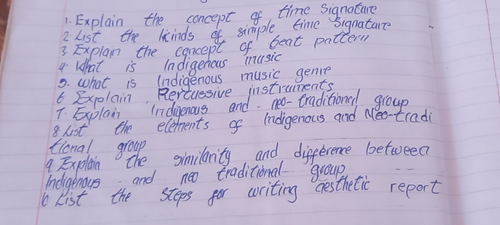 1. Explain the concept of time signature
2 List the kinds of simple time signature
3 Explain the concept of beat pattern
4. What is Indigenous music
5. what is Indigenous music genre
6 Explain Percussive instruments
7. Explain Indigenous and neo-traditional group
8 List the elements of Indigenous and Neo-tradi
tional group
9 Explain the similarity and difference between
Indigenous and neo traditional group
10 List the steps for writing aesthetic report